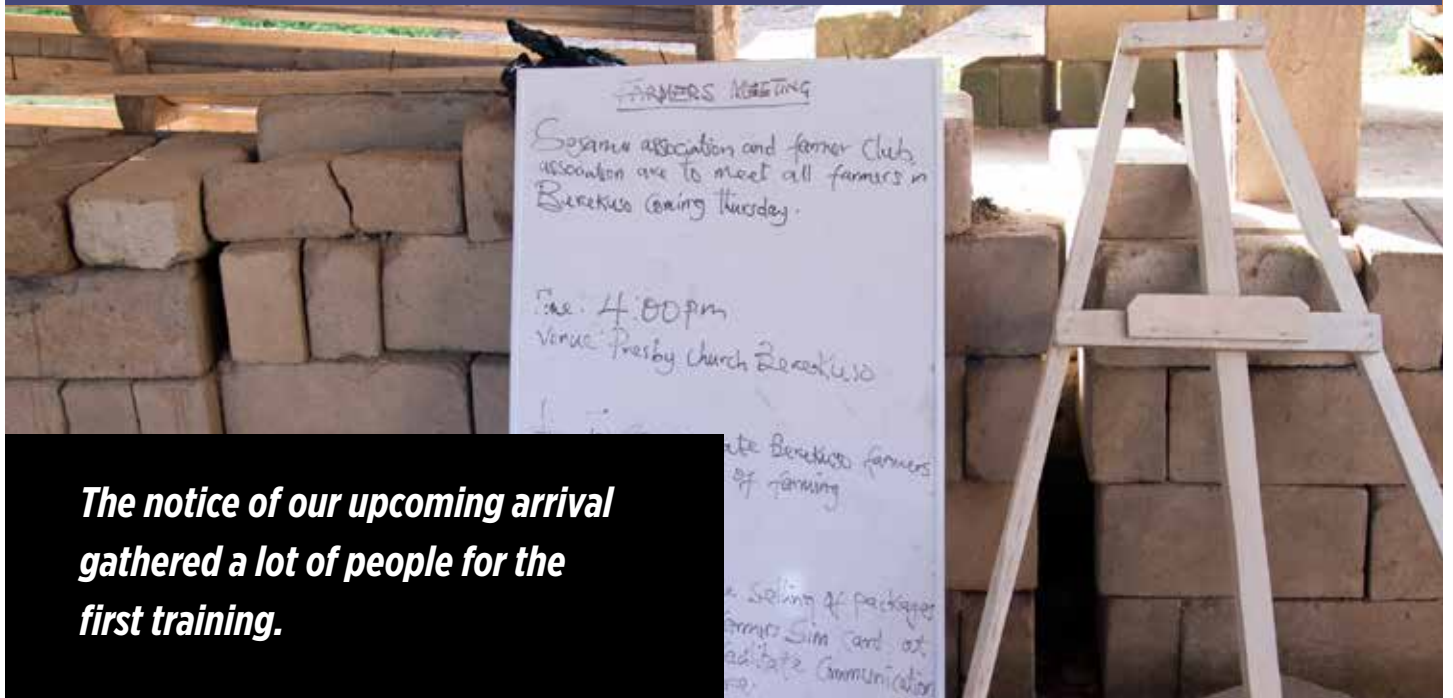 FARMERS MEETING
Sogama association and farmer Club
association are to meet all farmers in
Berekuso coming thursday.
Time: 4:00pm
Venue: Presby church Berekuso
Berekuso farmers
of farming
selling of packages
Sim card at
Communication
The notice of our upcoming arrival
gathered a lot of people for the
first training.